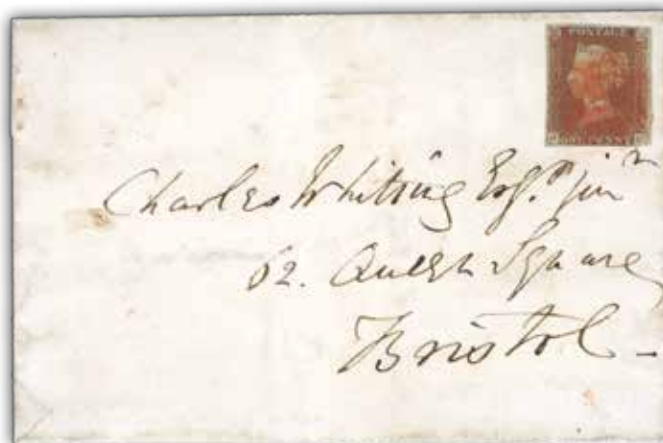 POSTAGE
ONE PENNY
Charles Whiting Esqr. junr
62. Queen Square
Bristol